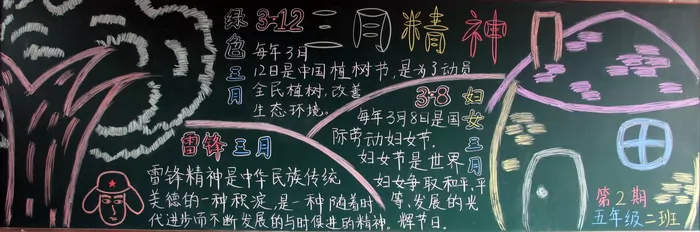 三月精神
绿色三月
3·12
每年3月
12日是中国植树节,是为了动员
全民植树,改善
生态环境.
3·8
妇女三月
每年3月8日是国
际劳动妇女节.
妇女节是世界
妇女争取和平、平
等、发展的光
辉节日.
雷锋三月
雷锋精神是中华民族传统
美德的一种积淀,是一种随着时
代进步而不断发展的与时俱进的精神.
第2期
五年级二班